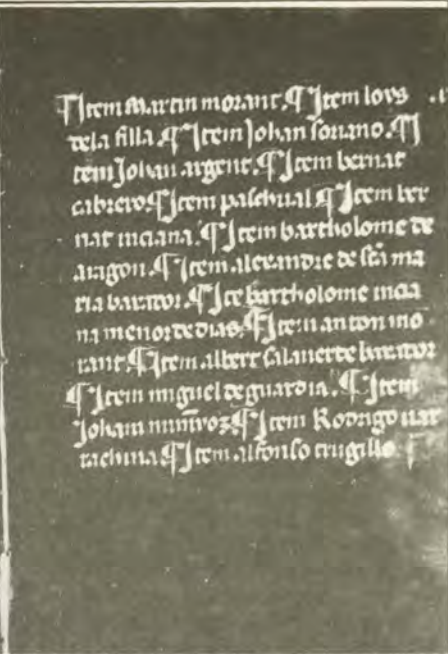 ¶ Item Martin morant. ¶ Item loys
de la filla. ¶ Item Johan soriano. ¶ I
tem Johan argent. ¶ Item bernat
cabrero. ¶ Item paschual ¶ Item ber
nat inciana. ¶ Item bartholome de
aragon. ¶ Item alexandre de sta ma
ria barator. ¶ Ite bartholome incia
na menor de dias. ¶ Item anton mo
rant. ¶ Item albert Calauerde barator
¶ Item miguel de guardia. ¶ Item
Johan Rodrigo nar
tachina ¶ Item alfonso trugillo.